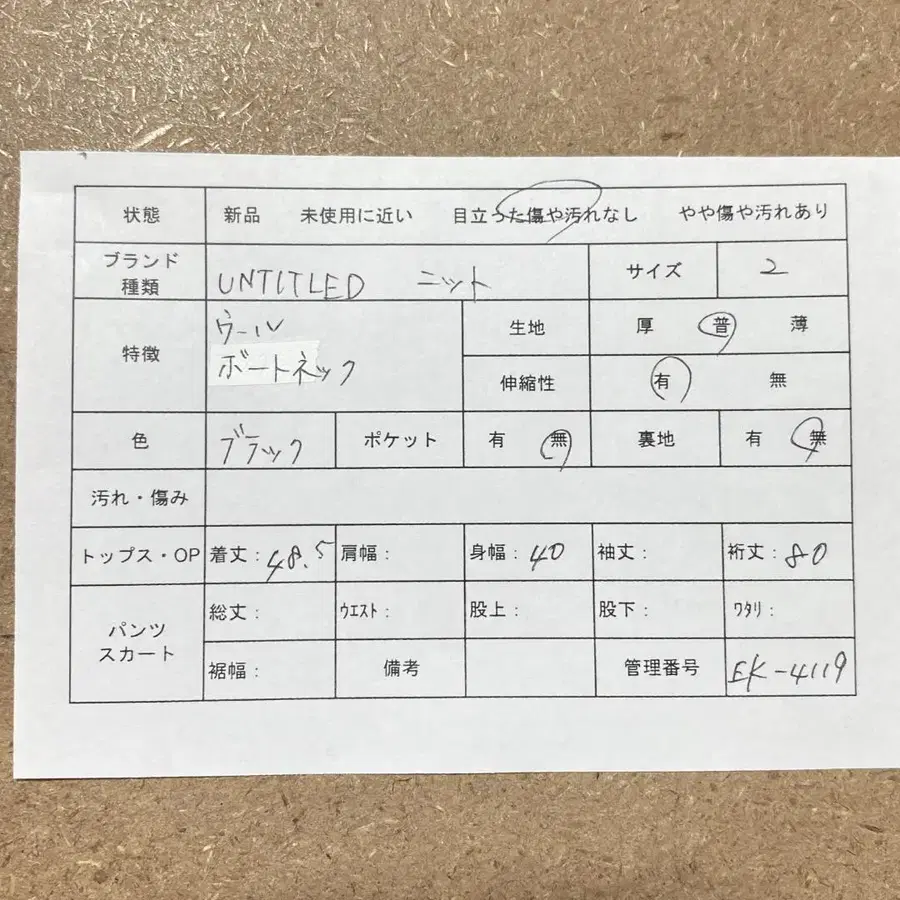 状態 新品 未使用に近い 目立った傷や汚れなし やや傷や汚れあり
ブランド
種類 UNTITLED ニット サイズ 2
特徴 ウール
ボートネック
生地 厚 普 薄
伸縮性 有 無
色 ブラック ポケット 有 無 裏地 有 無
汚れ・傷み
トップス・OP 着丈: 48.5 肩幅: 身幅: 40 袖丈: 裄丈: 80
パンツ
スカート
総丈: ウエスト: 股上: 股下: ワタリ:
裾幅: 備考 管理番号 EK-4119